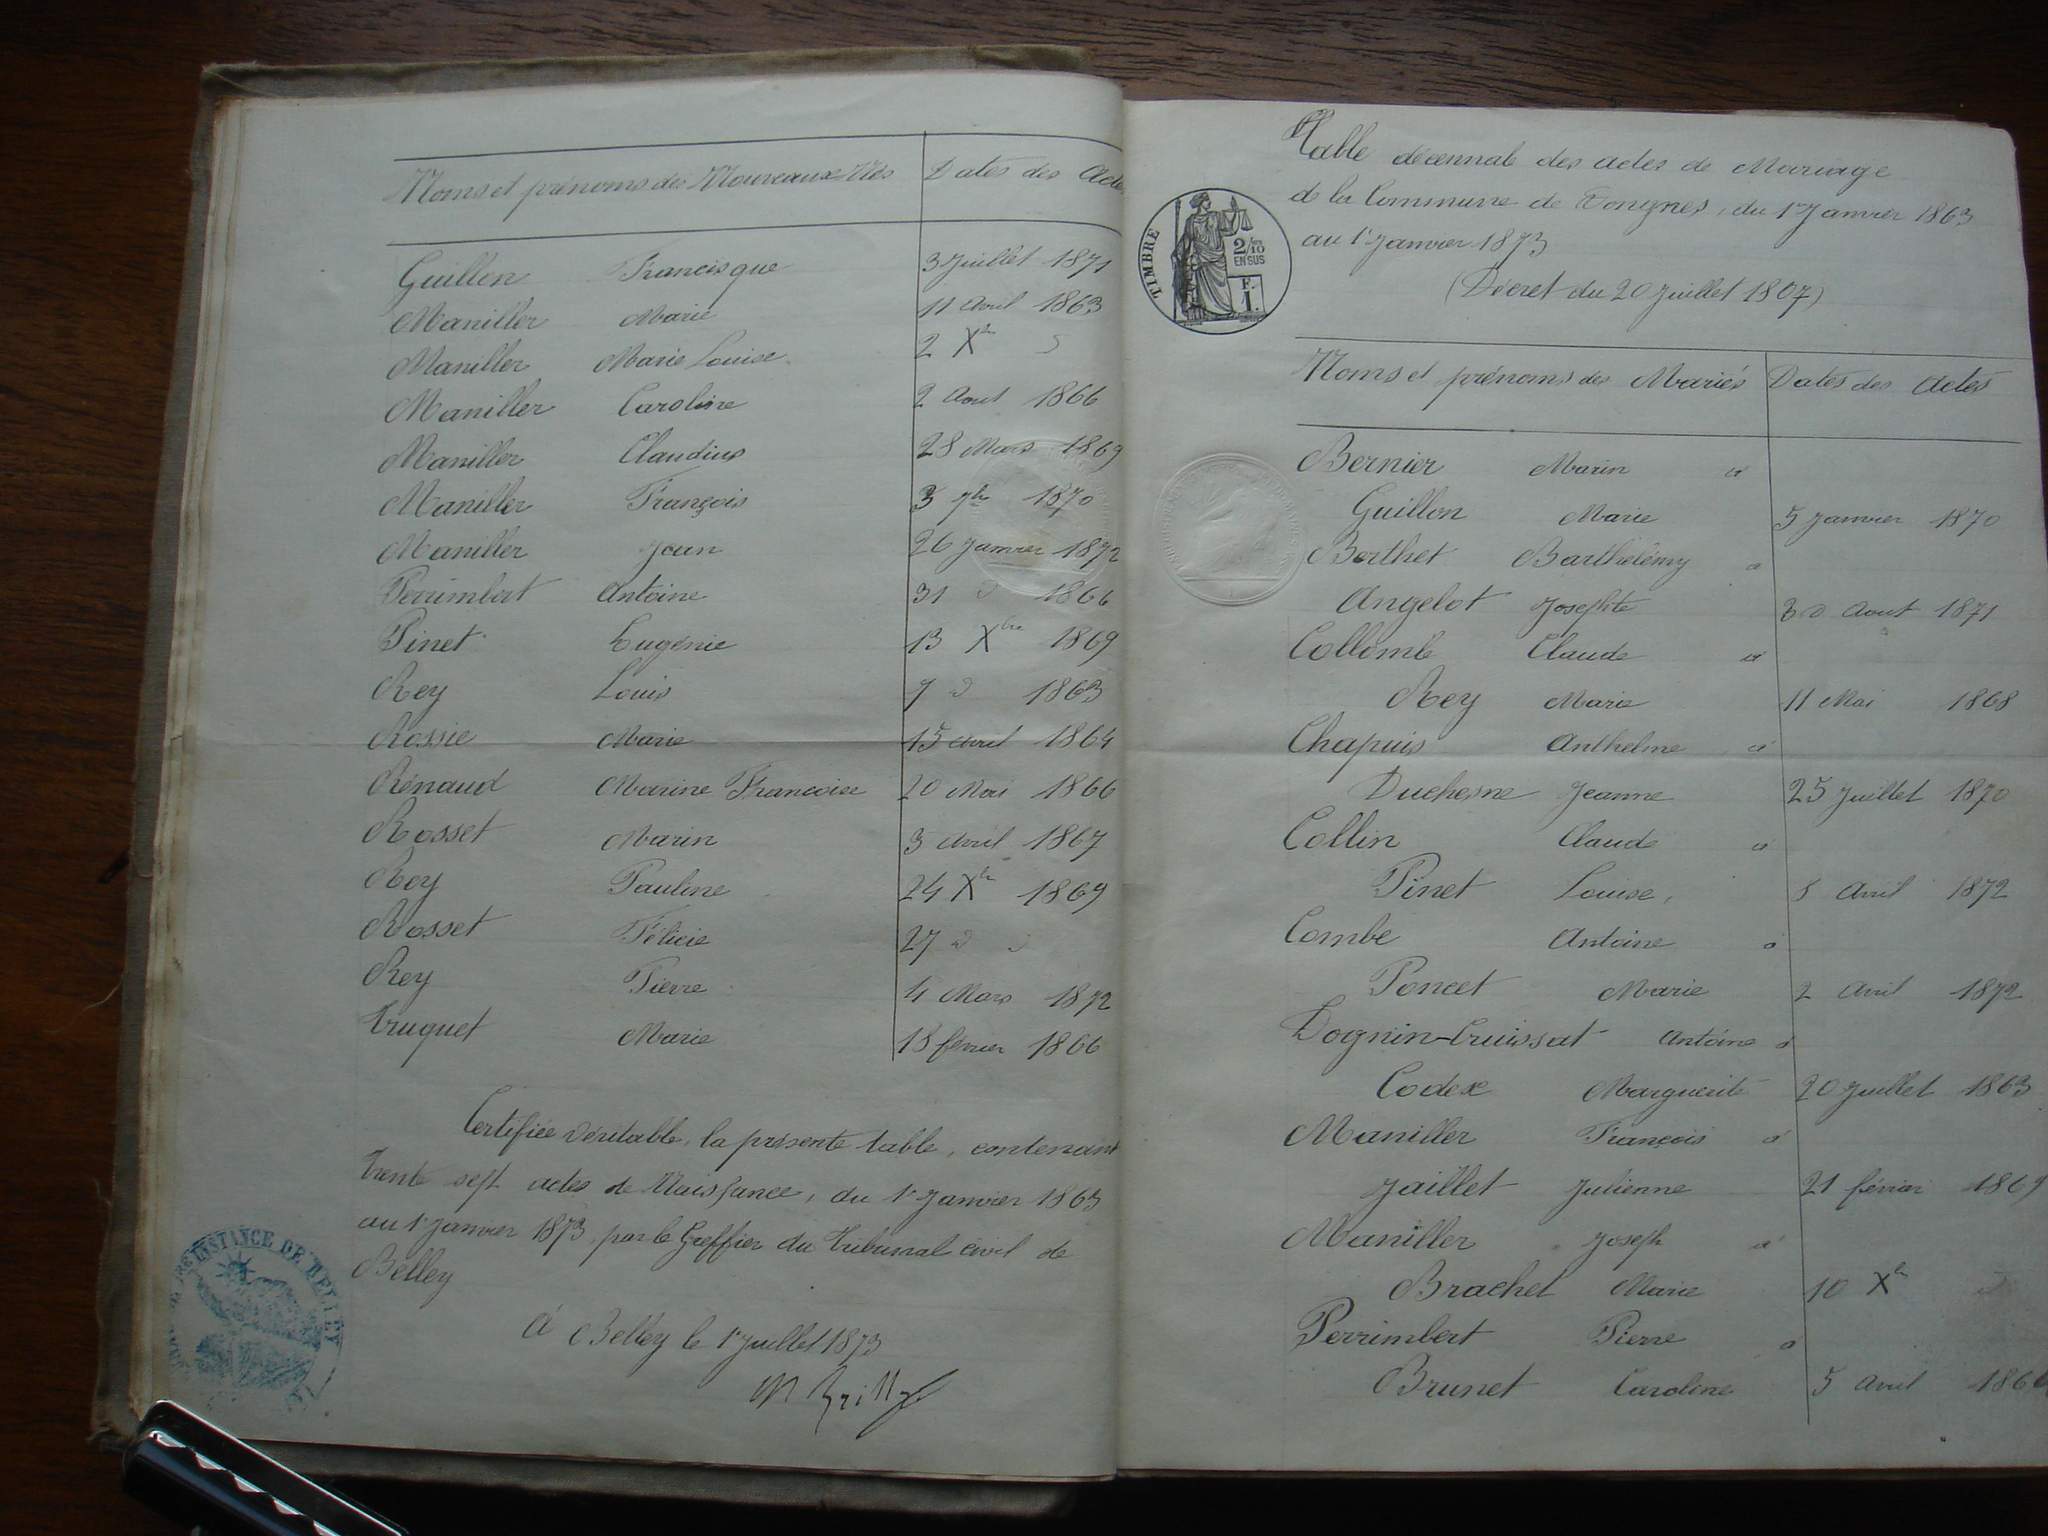 Noms et prénoms des Nouveaux Nés Dates des Actes
Guillon Francisque 3 Juillet 1871
Maniller Marie 11 Avril 1863
Maniller Marie Louise 2 Xbre d
Maniller Caroline 2 Aout 1866
Maniller Claudius 28 Mars 1869
Maniller François 3 7bre 1870
Maniller Jean 26 Janvier 1872
Perrimbert Antoine 31 d 1866
Pinet Eugénie 13 Xbre 1869
Rey Louis 7 d 1863
Rossie Marie 15 Avril 1864
Rénaud Marine Francoise 20 Mai 1866
Rosset Marin 3 Avril 1867
Rey Pauline 24 Xbre 1869
Rosset Félicie 27 d d
Rey Pierre 4 Mars 1872
Truquet Marie 18 fevrier 1866
Certifiée véritable, la présente table, contenant
trente sept actes de Naissance, du 1er Janvier 1863
au 1er Janvier 1873, par le Greffier du Tribunal civil de
Belley
A Belley le 1er Juillet 1873
INSTANCE DE BELLEY
Table décennale des actes de Mariage
de la Commune de Pongnes, du 1er Janvier 1863
au 1er Janvier 1873
(Décret du 20 Juillet 1807)
TIMBRE
2/10
EN SUS
F.
1.
Noms et prénoms des Mariés Dates des Actes
Bernier Marin a
Guillon Marie 5 Janvier 1870
Berthet Barthélémy a
Angelot Josephte 30 Aout 1871
Collomb Claude a
Rey Marie 11 Mai 1868
Chapuis Anthelme a
Duchesne Jeanne 25 Juillet 1870
Collin Claude a
Pinet Louise 8 Avril 1872
Combe Antoine a
Poncet Marie 2 Avril 1872
Dognin-Cuissat Antoine a
Codex Marguerite 20 Juillet 1863
Maniller François a
Jaillet Julienne 21 février 1869
Maniller Joseph a
Brachet Marie 10 Xbre d
Perrimbert Pierre a
Brunet Caroline 5 Avril